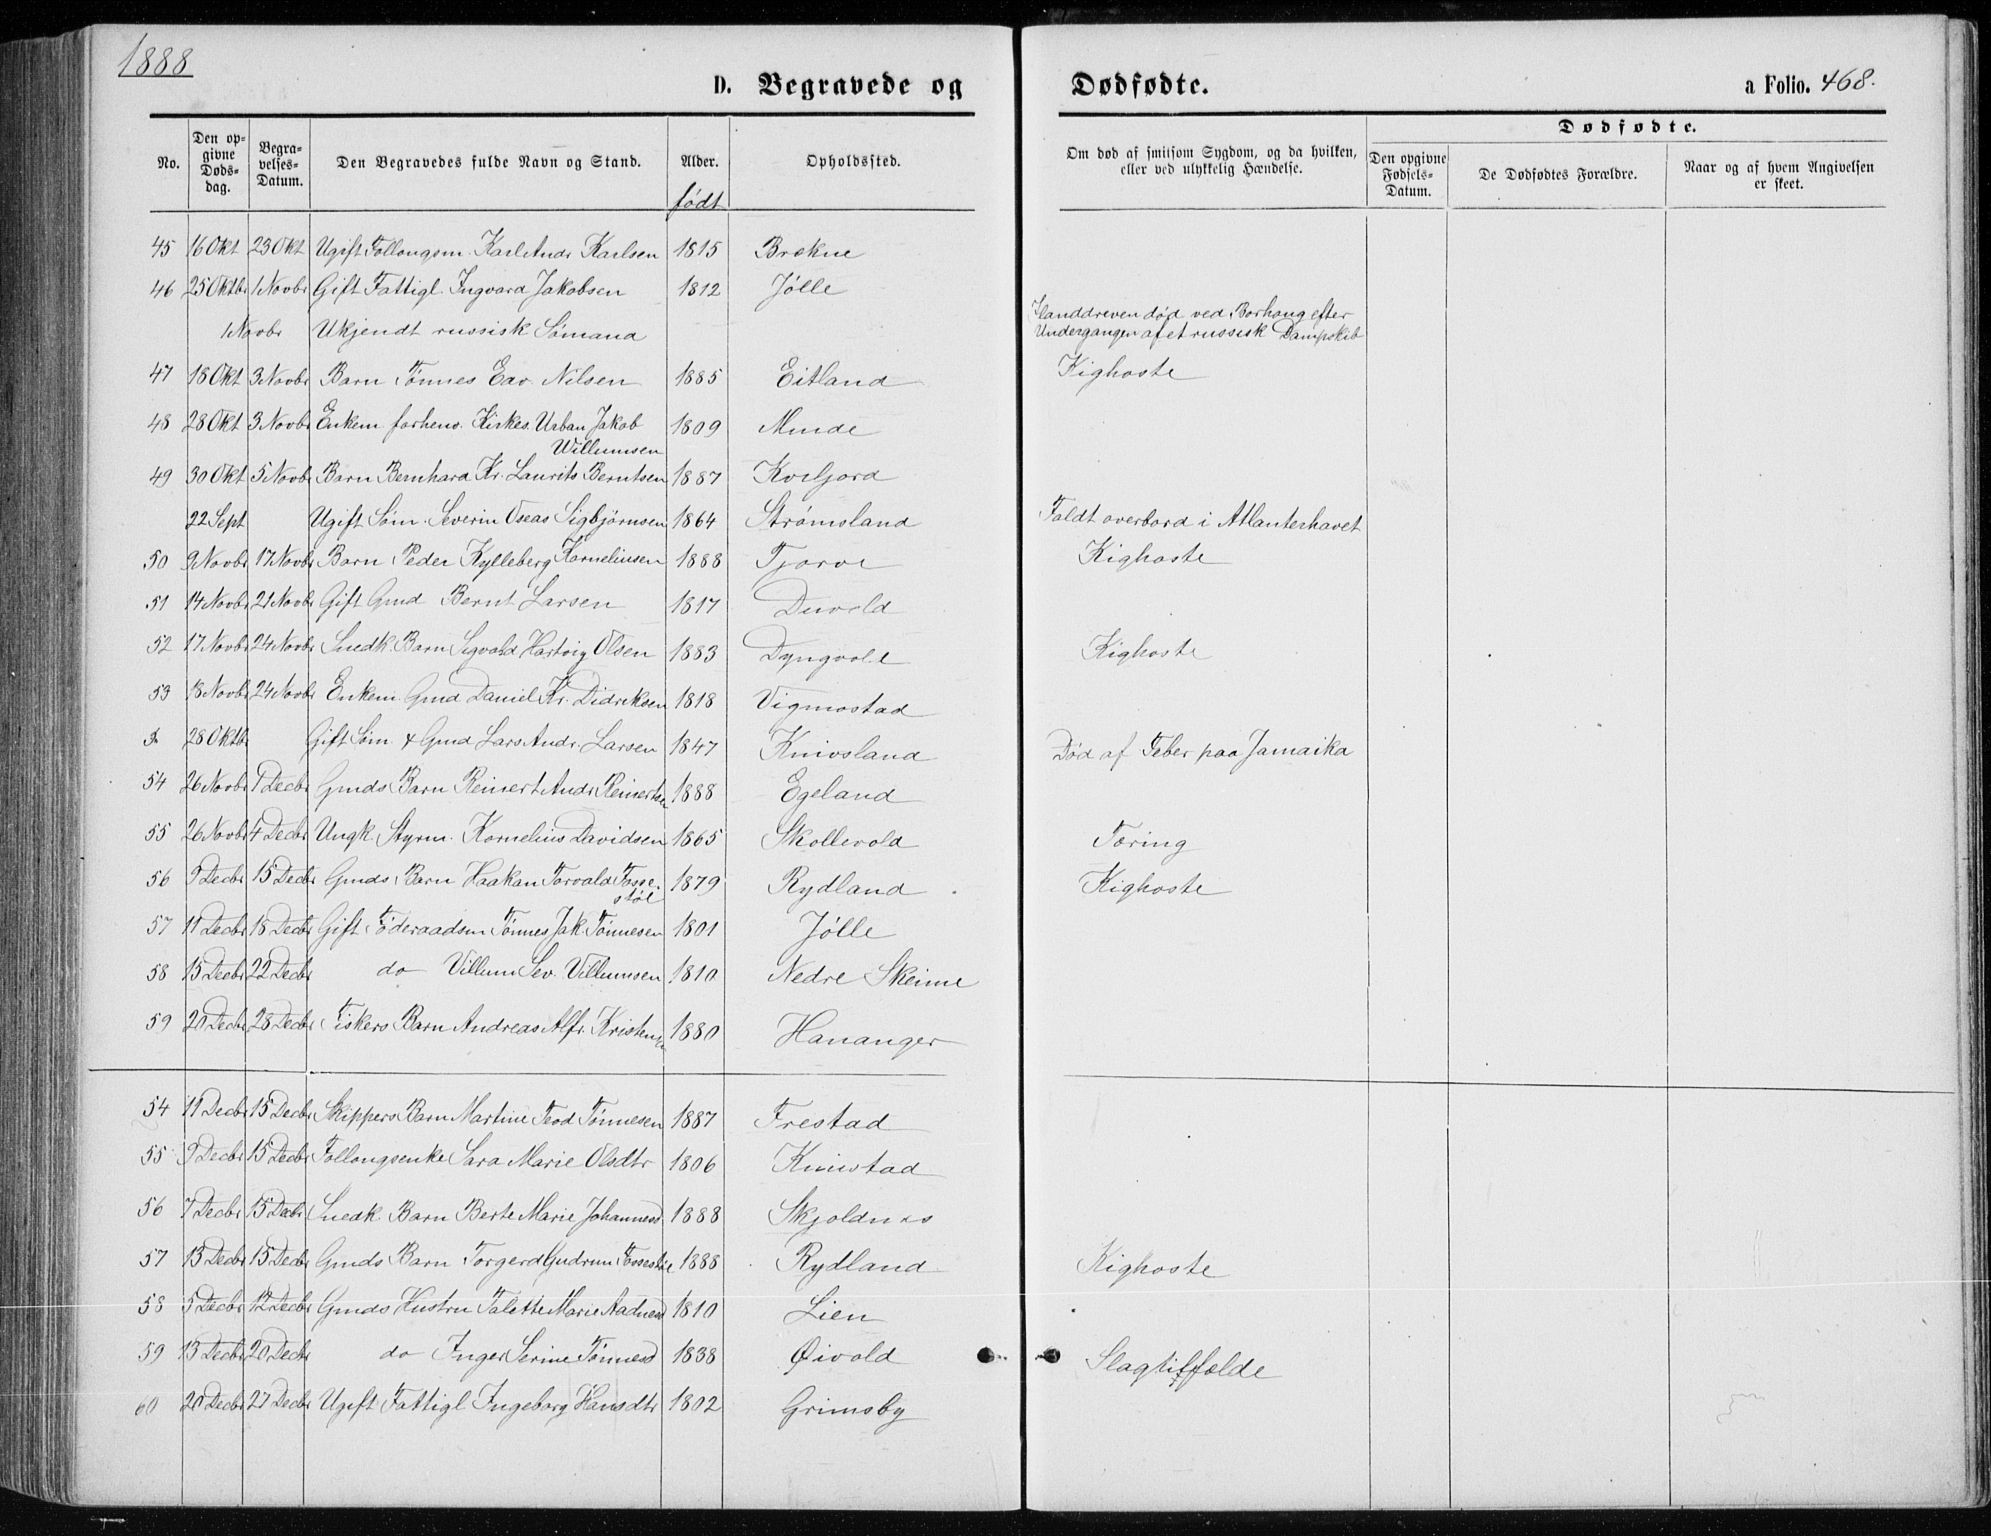 1888
D. Begravede og Dødfødte. a Folio. 468.
No. Den opgivne Dødsdag. Begravelses-Datum. Den Begravedes fulde Navn og Stand. Alder. født Opholdssted. Om død af smitsom Sygdom, og da hvilken, eller ved ulykkelig Hændelse. Dødfødte. Den opgivne Fødsels-Datum. De Dødfødtes Forældre. Naar og af hvem Angivelsen er skeet.
45 16 Okt 23 Okt Ugift Follougsm. Karl Andr Karlsen 1815 Brekne
46 25 Oktbr 1 Novbr Gift Fattigl. Ingvard Jakobsen 1812 Jølle
1 Novbr Ukjendt russisk Sømand Ilanddreven død ved Borhaug efter
Undergangen af et russisk Dampskib
47 18 Okt 3 Novbr Barn Tønnes Edv. Nilsen 1885 Eitland Kighoste
48 28 Okt 3 Novbr Enkem forhenv. Kirkes. Urban Jakob 1809 Mnde
Willumsen
49 30 Okt 5 Novbr Barn Bernhard Kr. Laurits Berntsen 1887 Kveljord
22 Sept Ugift Søm. Severin Oseas Sigbjørnsen 1864 Strømsland Faldt overbord i Atlanterhavet
50 9 Novbr 17 Novbr Barn Peder Kylleberg Korneliusen 1888 Tjorve Kighoste
51 14 Novbr 21 Novbr Gift Gmd Bernt Larsen 1817 Duvold
52 17 Novbr 24 Novbr Snedk. Barn Sigvald Hartvig Olsen 1883 Dyngvole Kighoste
53 18 Novbr 24 Novbr Enkem. Gmd Daniel Kr. Didriksen 1818 Vigmostad
28 Oktb Gift Søm & Gmd Lars Andr. Larsen 1847 Knivsland Død af Feber paa Jamaika
54 26 Novbr 1 Decbr Gmds Barn Reinert Andr Reinertsen 1888 Egeland
55 26 Novbr 4 Decbr Ungk. Styrm. Kornelius Davidsen 1865 Skollevold Tæring
56 9 Decbr 15 Decbr Gmds Barn Haakan Torvald Fosse- 1879 Rydland Kighoste
støl
57 11 Decbr 18 Decbr Gift Føderaadsm Tønnes Jak. Tønnesen 1801 Jølle
58 15 Decbr 22 Decbr do Villum Sev. Villumsen 1810 Nedre Skeime
59 20 Decbr 28 Decbr Fiskers Barn Andreas Alfr. Kristensen 1880 Hananger
54 11 Decbr 15 Decbr Skippers Barn Martine Teod Tønnesen 1887 Frestad
55 9 Decbr 15 Decbr Follougsenke Sara Marie Olsdtr 1806 Knivstad
56 7 Decbr 15 Decbr Snedk. Barn Berte Marie Johannesd 1888 Skjoldnes
57 13 Decbr 15 Decbr Gmds Barn Torgerd Gudrun Fossestøl 1888 Rydland Kighoste
58 5 Decbr 12 Decbr Gmds Hustru Talette Marie Aadnesd 1810 Lien
59 13 Decbr 20 Decbr do Inger Serine Tønnesd 1838 Øivold Slagtilfælde
60 20 Decbr 27 Decbr Ugift Fattigl Ingeborg Hansdtr 1802 Grimsby